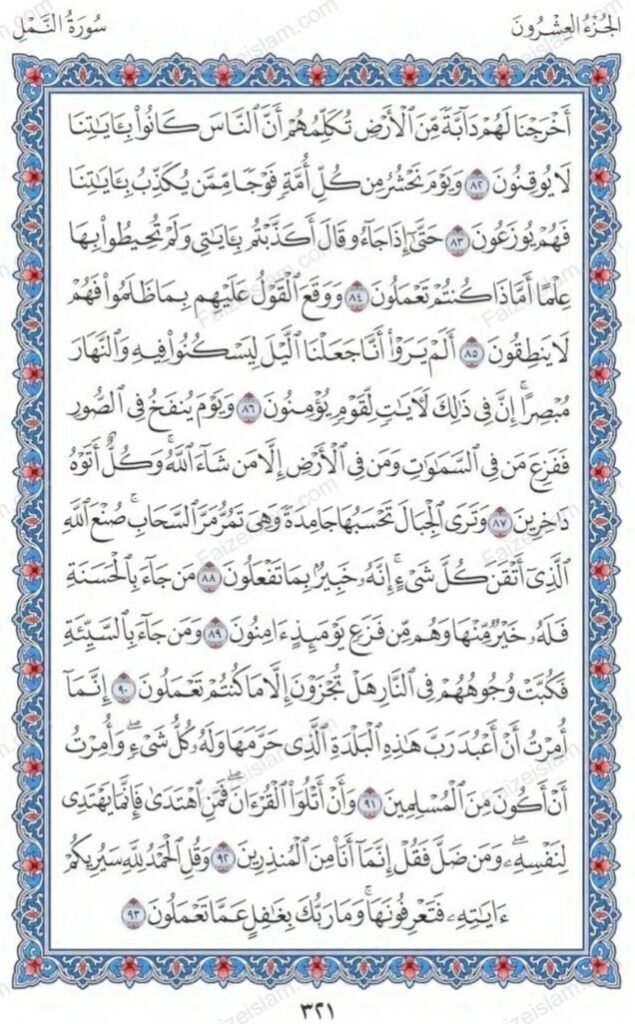 الجُزْءُ العِشْرُونَ
سُورَةُ النَّمْلِ
أَخْرَجْنَا لَهُمْ دَآبَّةً مِّنَ ٱلْأَرْضِ تُكَلِّمُهُمْ أَنَّ ٱلنَّاسَ كَانُوا۟ بِـَٔايَـٰتِنَا
لَا يُوقِنُونَ ٨٢ وَيَوْمَ نَحْشُرُ مِن كُلِّ أُمَّةٍ فَوْجًا مِّمَّن يُكَذِّبُ بِـَٔايَـٰتِنَا
فَهُمْ يُوزَعُونَ ٨٣ حَتَّىٰٓ إِذَا جَآءُو قَالَ أَكَذَّبْتُم بِـَٔايَـٰتِى وَلَمْ تُحِيطُوا۟ بِهَا
عِلْمًا أَمَّاذَا كُنتُمْ تَعْمَلُونَ ٨٤ وَوَقَعَ ٱلْقَوْلُ عَلَيْهِم بِمَا ظَلَمُوا۟ فَهُمْ
لَا يَنطِقُونَ ٨٥ أَلَمْ يَرَوْا۟ أَنَّا جَعَلْنَا ٱلَّيْلَ لِيَسْكُنُوا۟ فِيهِ وَٱلنَّهَارَ
مُبْصِرًا ۚ إِنَّ فِى ذَٰلِكَ لَـَٔايَـٰتٍ لِّقَوْمٍ يُؤْمِنُونَ ٨٦ وَيَوْمَ يُنفَخُ فِى ٱلصُّورِ
فَفَزِعَ مَن فِى ٱلسَّمَـٰوَٰتِ وَمَن فِى ٱلْأَرْضِ إِلَّا مَن شَآءَ ٱللَّهُ ۚ وَكُلٌّ أَتَوْهُ
دَٰخِرِينَ ٨٧ وَتَرَى ٱلْجِبَالَ تَحْسَبُهَا جَامِدَةً وَهِىَ تَمُرُّ مَرَّ ٱلسَّحَابِ ۚ صُنْعَ ٱللَّهِ
ٱلَّذِىٓ أَتْقَنَ كُلَّ شَىْءٍ ۚ إِنَّهُۥ خَبِيرٌۢ بِمَا تَفْعَلُونَ ٨٨ مَن جَآءَ بِٱلْحَسَنَةِ
فَلَهُۥ خَيْرٌ مِّنْهَا وَهُم مِّن فَزَعٍ يَوْمَئِذٍ ءَامِنُونَ ٨٩ وَمَن جَآءَ بِٱلسَّيِّئَةِ
فَكُبَّتْ وُجُوهُهُمْ فِى ٱلنَّارِ هَلْ تُجْزَوْنَ إِلَّا مَا كُنتُمْ تَعْمَلُونَ ٩٠ إِنَّمَآ
أُمِرْتُ أَنْ أَعْبُدَ رَبَّ هَـٰذِهِ ٱلْبَلْدَةِ ٱلَّذِى حَرَّمَهَا وَلَهُۥ كُلُّ شَىْءٍ ۖ وَأُمِرْتُ
أَنْ أَكُونَ مِنَ ٱلْمُسْلِمِينَ ٩١ وَأَنْ أَتْلُوَا۟ ٱلْقُرْءَانَ ۖ فَمَنِ ٱهْتَدَىٰ فَإِنَّمَا يَهْتَدِى
لِنَفْسِهِۦ ۖ وَمَن ضَلَّ فَقُلْ إِنَّمَآ أَنَا۠ مِنَ ٱلْمُنذِرِينَ ٩٢ وَقُلِ ٱلْحَمْدُ لِلَّهِ سَيُرِيكُمْ
ءَايَـٰتِهِۦ فَتَعْرِفُونَهَا ۚ وَمَا رَبُّكَ بِغَـٰفِلٍ عَمَّا تَعْمَلُونَ ٩٣
Faizeislam.com
٣٢١